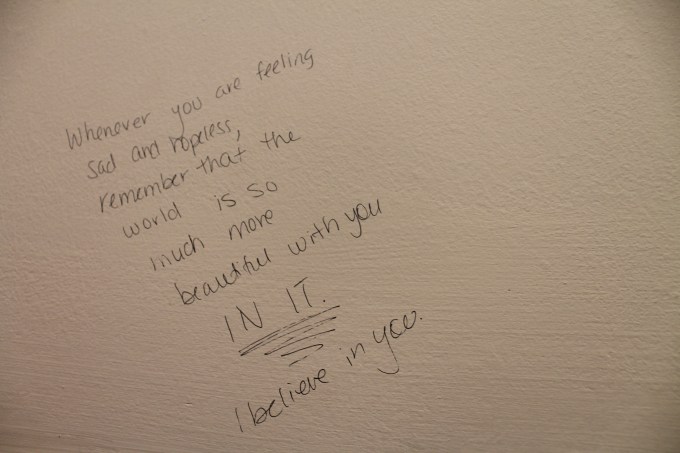 Whenever you are feeling
sad and hopeless,
remember that the
world is so
much more
beautiful with you
IN IT.
I believe in you.